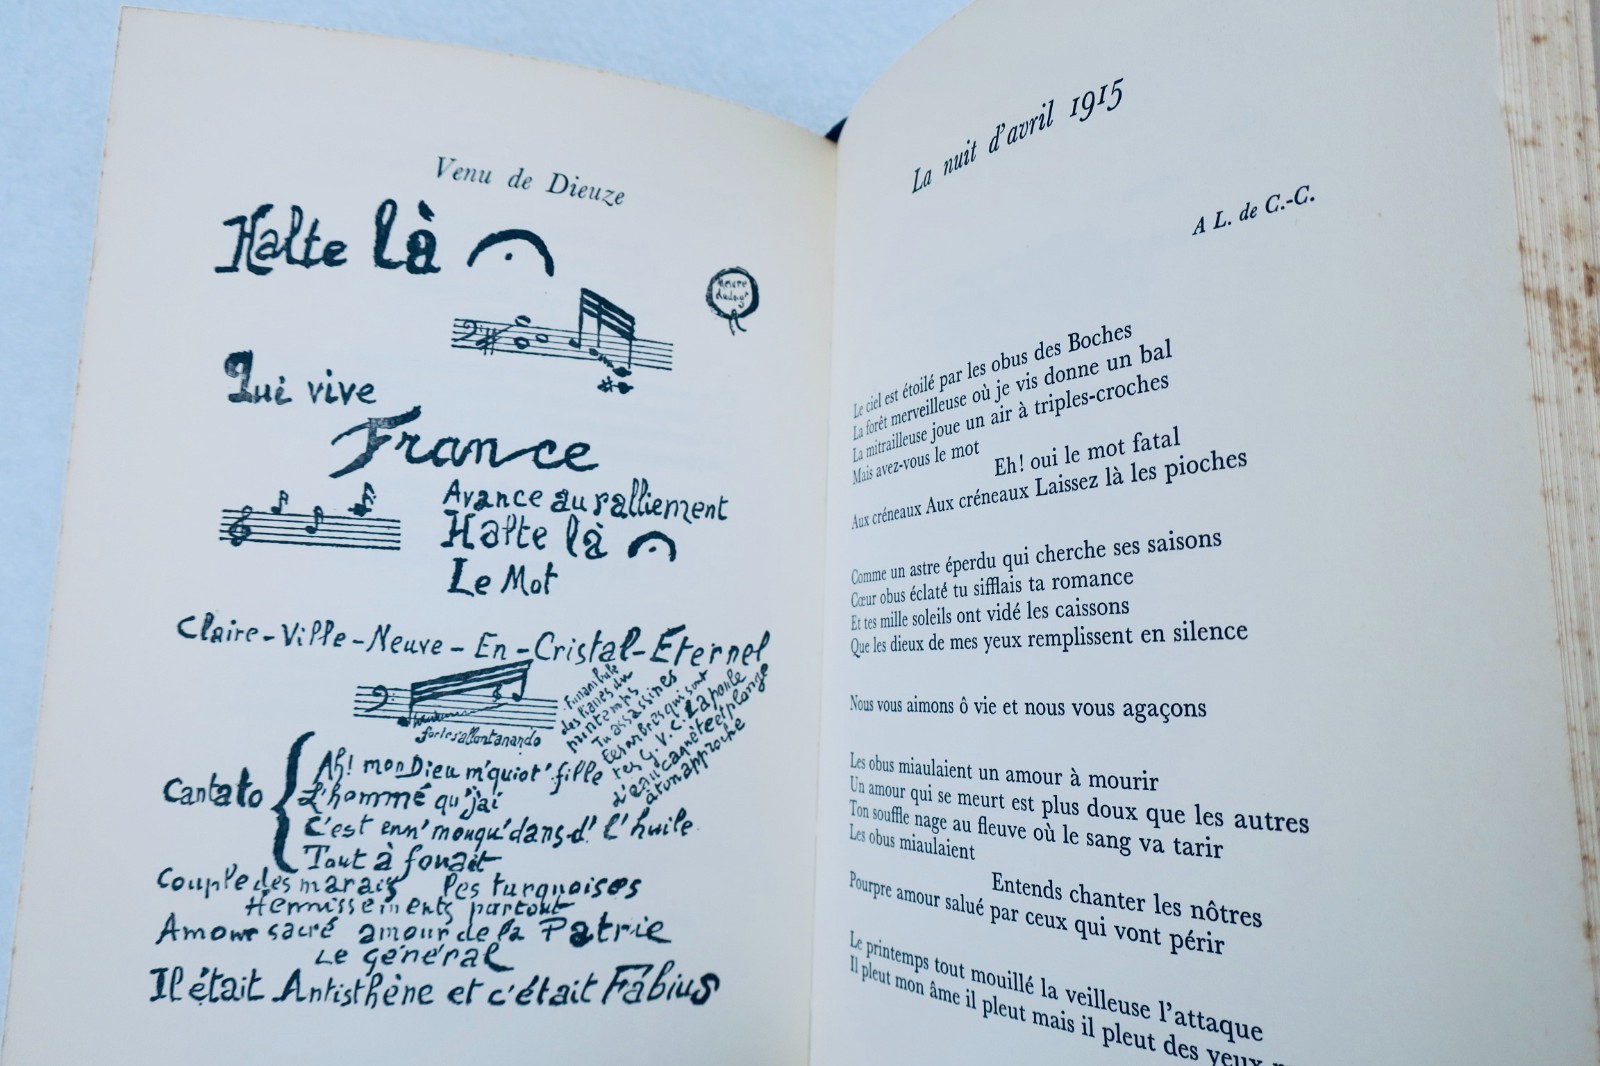 Venu de Dieuze
Halte là
Qui vive
France
Avance au ralliement
Halte là
Le Mot
Claire-Ville-Neuve-En-Cristal-Éternel
Funambule
des lianes du
printemps
Tu assassines
les arbres qui sont
tes G.V.C. La poule
d'eau caquète et plonge
à ton approche
Cantato
Ah! mon Dieu m'quiot' fille
L'hommé qu'j'ai
C'est enn' mouqu' dans d' l'huile
Tout à fouait
Couple des marais les turquoises
Hennissements partout
Amour sacré amour de la Patrie
Le général
Il était Antisthène et c'était Fabius
La nuit d'avril 1915
A L. de C.-C.
Le ciel est étoilé par les obus des Boches
La forêt merveilleuse où je vis donne un bal
La mitrailleuse joue un air à triples-croches
Mais avez-vous le mot
Eh! oui le mot fatal
Aux créneaux Aux créneaux Laissez là les pioches
Comme un astre éperdu qui cherche ses saisons
Cœur obus éclaté tu sifflais ta romance
Et tes mille soleils ont vidé les caissons
Que les dieux de mes yeux remplissent en silence
Nous vous aimons ô vie et nous vous agaçons
Les obus miaulaient un amour à mourir
Un amour qui se meurt est plus doux que les autres
Ton souffle nage au fleuve où le sang va tarir
Les obus miaulaient
Entends chanter les nôtres
Pourpre amour salué par ceux qui vont périr
Le printemps tout mouillé la veilleuse l'attaque
Il pleut mon âme il pleut mais il pleut des yeux